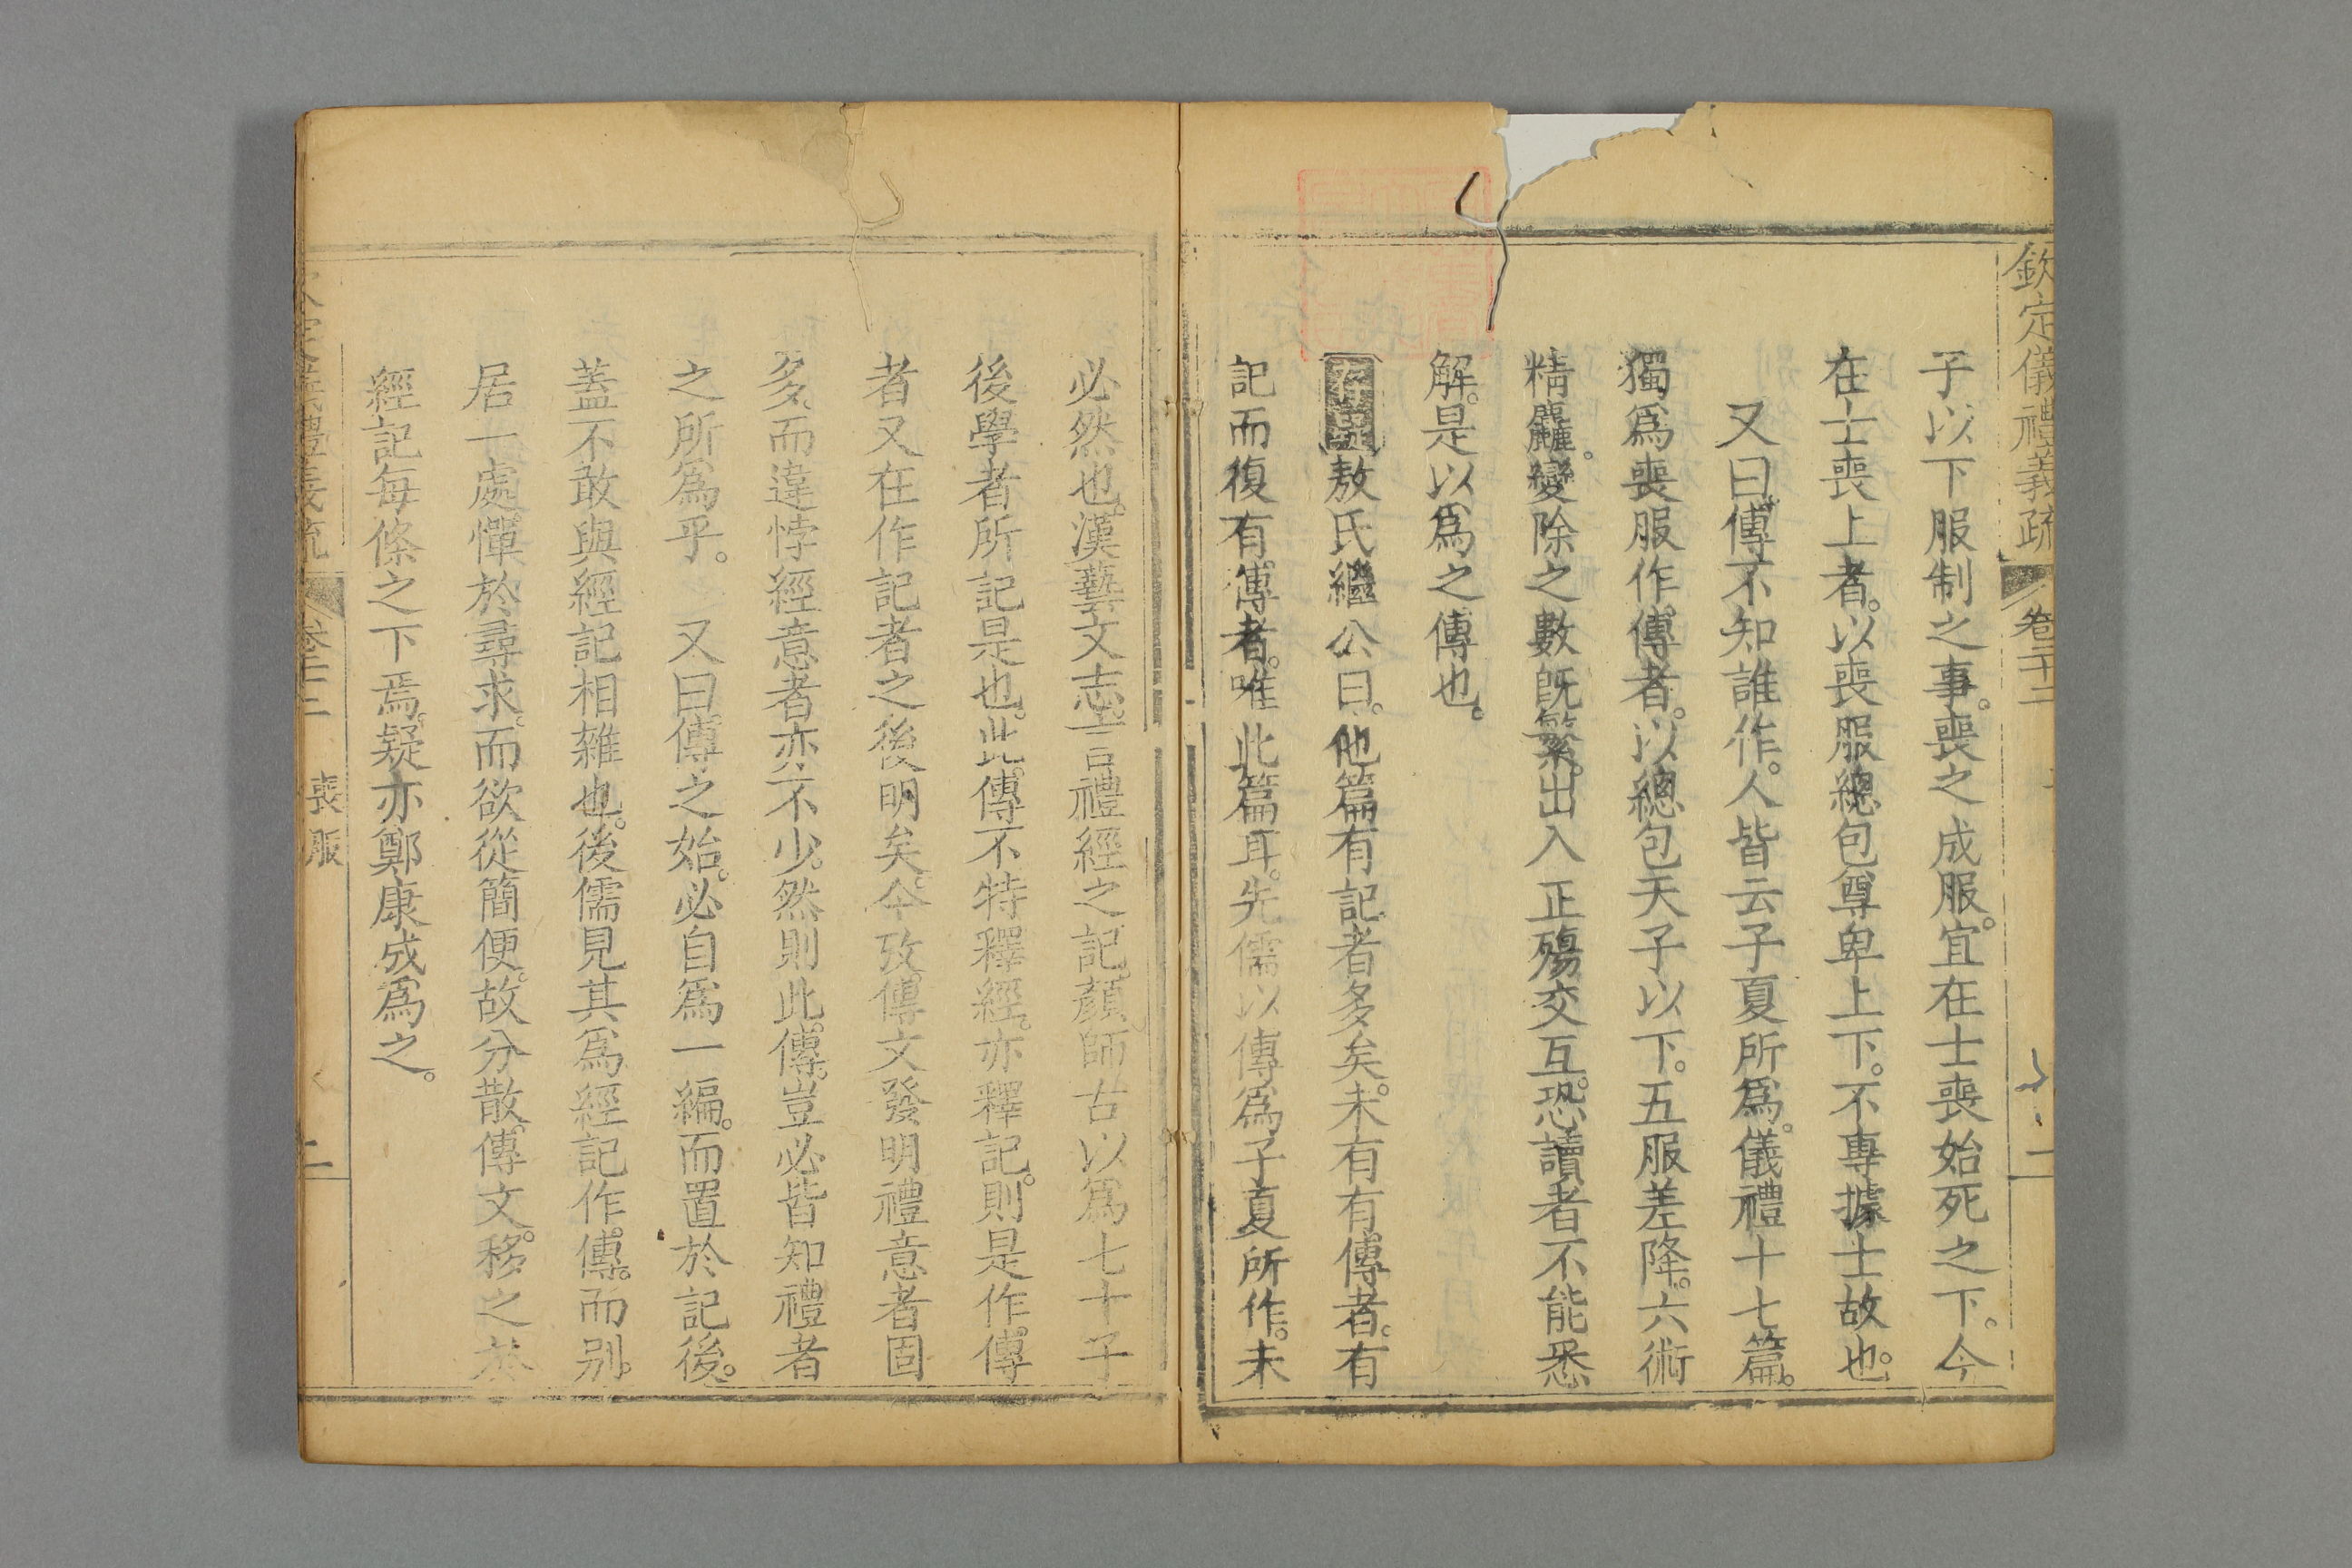 欽定儀禮義疏 卷二十二 一
子以下服制之事。喪之成服。宜在士喪始死之下。今
在士喪上者。以喪服總包尊卑上下。不專據士故也。
又曰。傳不知誰作。人皆云子夏所爲。儀禮十七篇。
獨爲喪服作傳者。以總包天子以下。五服差降。六術
精麤。變除之數旣繁。出入正殤交互。恐讀者不能悉
解。是以爲之傳也。
存疑敖氏繼公曰。他篇有記者多矣。未有有傳者。有
記而復有傳者。唯此篇耳。先儒以傳爲子夏所作。未
必然也。漢藝文志。言禮經之記。顏師古以爲七十子
後學者所記是也。此傳不特釋經。亦釋記。則是作傳
者又在作記者之後明矣。今攷傳文發明禮意者固
多。而違悖經意者亦不少。然則此傳。豈必皆知禮者
之所爲乎。 又曰。傳之始。必自爲一編。而置於記後。
蓋不敢與經記相雜也。後儒見其爲經記作傳。而別
居一處。憚於尋求。而欲從簡便。故分散傳文。移之於
經記每條之下焉。疑亦鄭康成爲之。
禮義疏 卷二十二 喪服 二